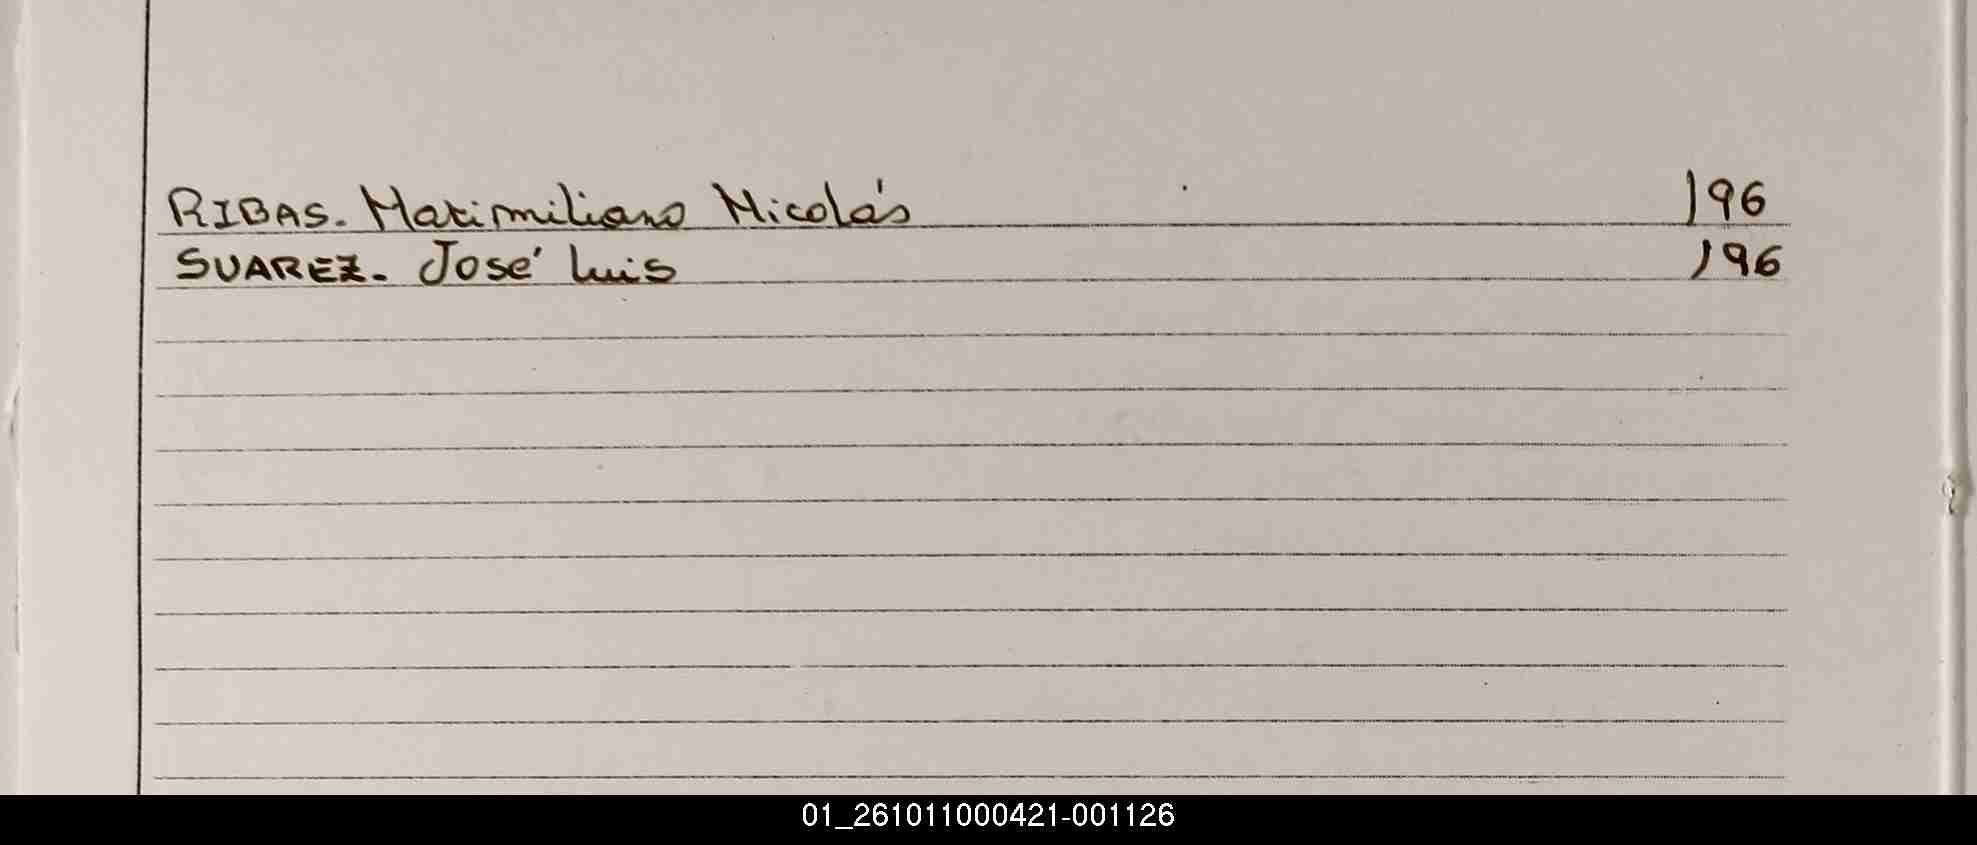 RIBAS. Maximiliano Nicolás 196
SUAREZ. José Luis 196
01_261011000421-001126